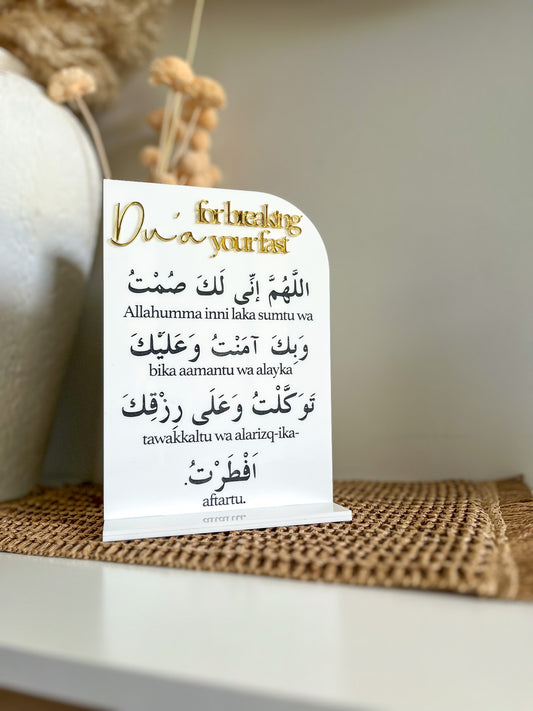 Du'a for breaking
your fast
اللَّهُمَّ إنِّي لَكَ صُمْتُ
Allahumma inni laka sumtu wa
وَبِكَ آمَنْتُ وَعَلَيْكَ
bika aamantu wa alayka
تَوَكَّلْتُ وَعَلَى رِزْقِكَ
tawakkaltu wa alarizq-ika-
اَفْطَرْتُ.
aftartu.